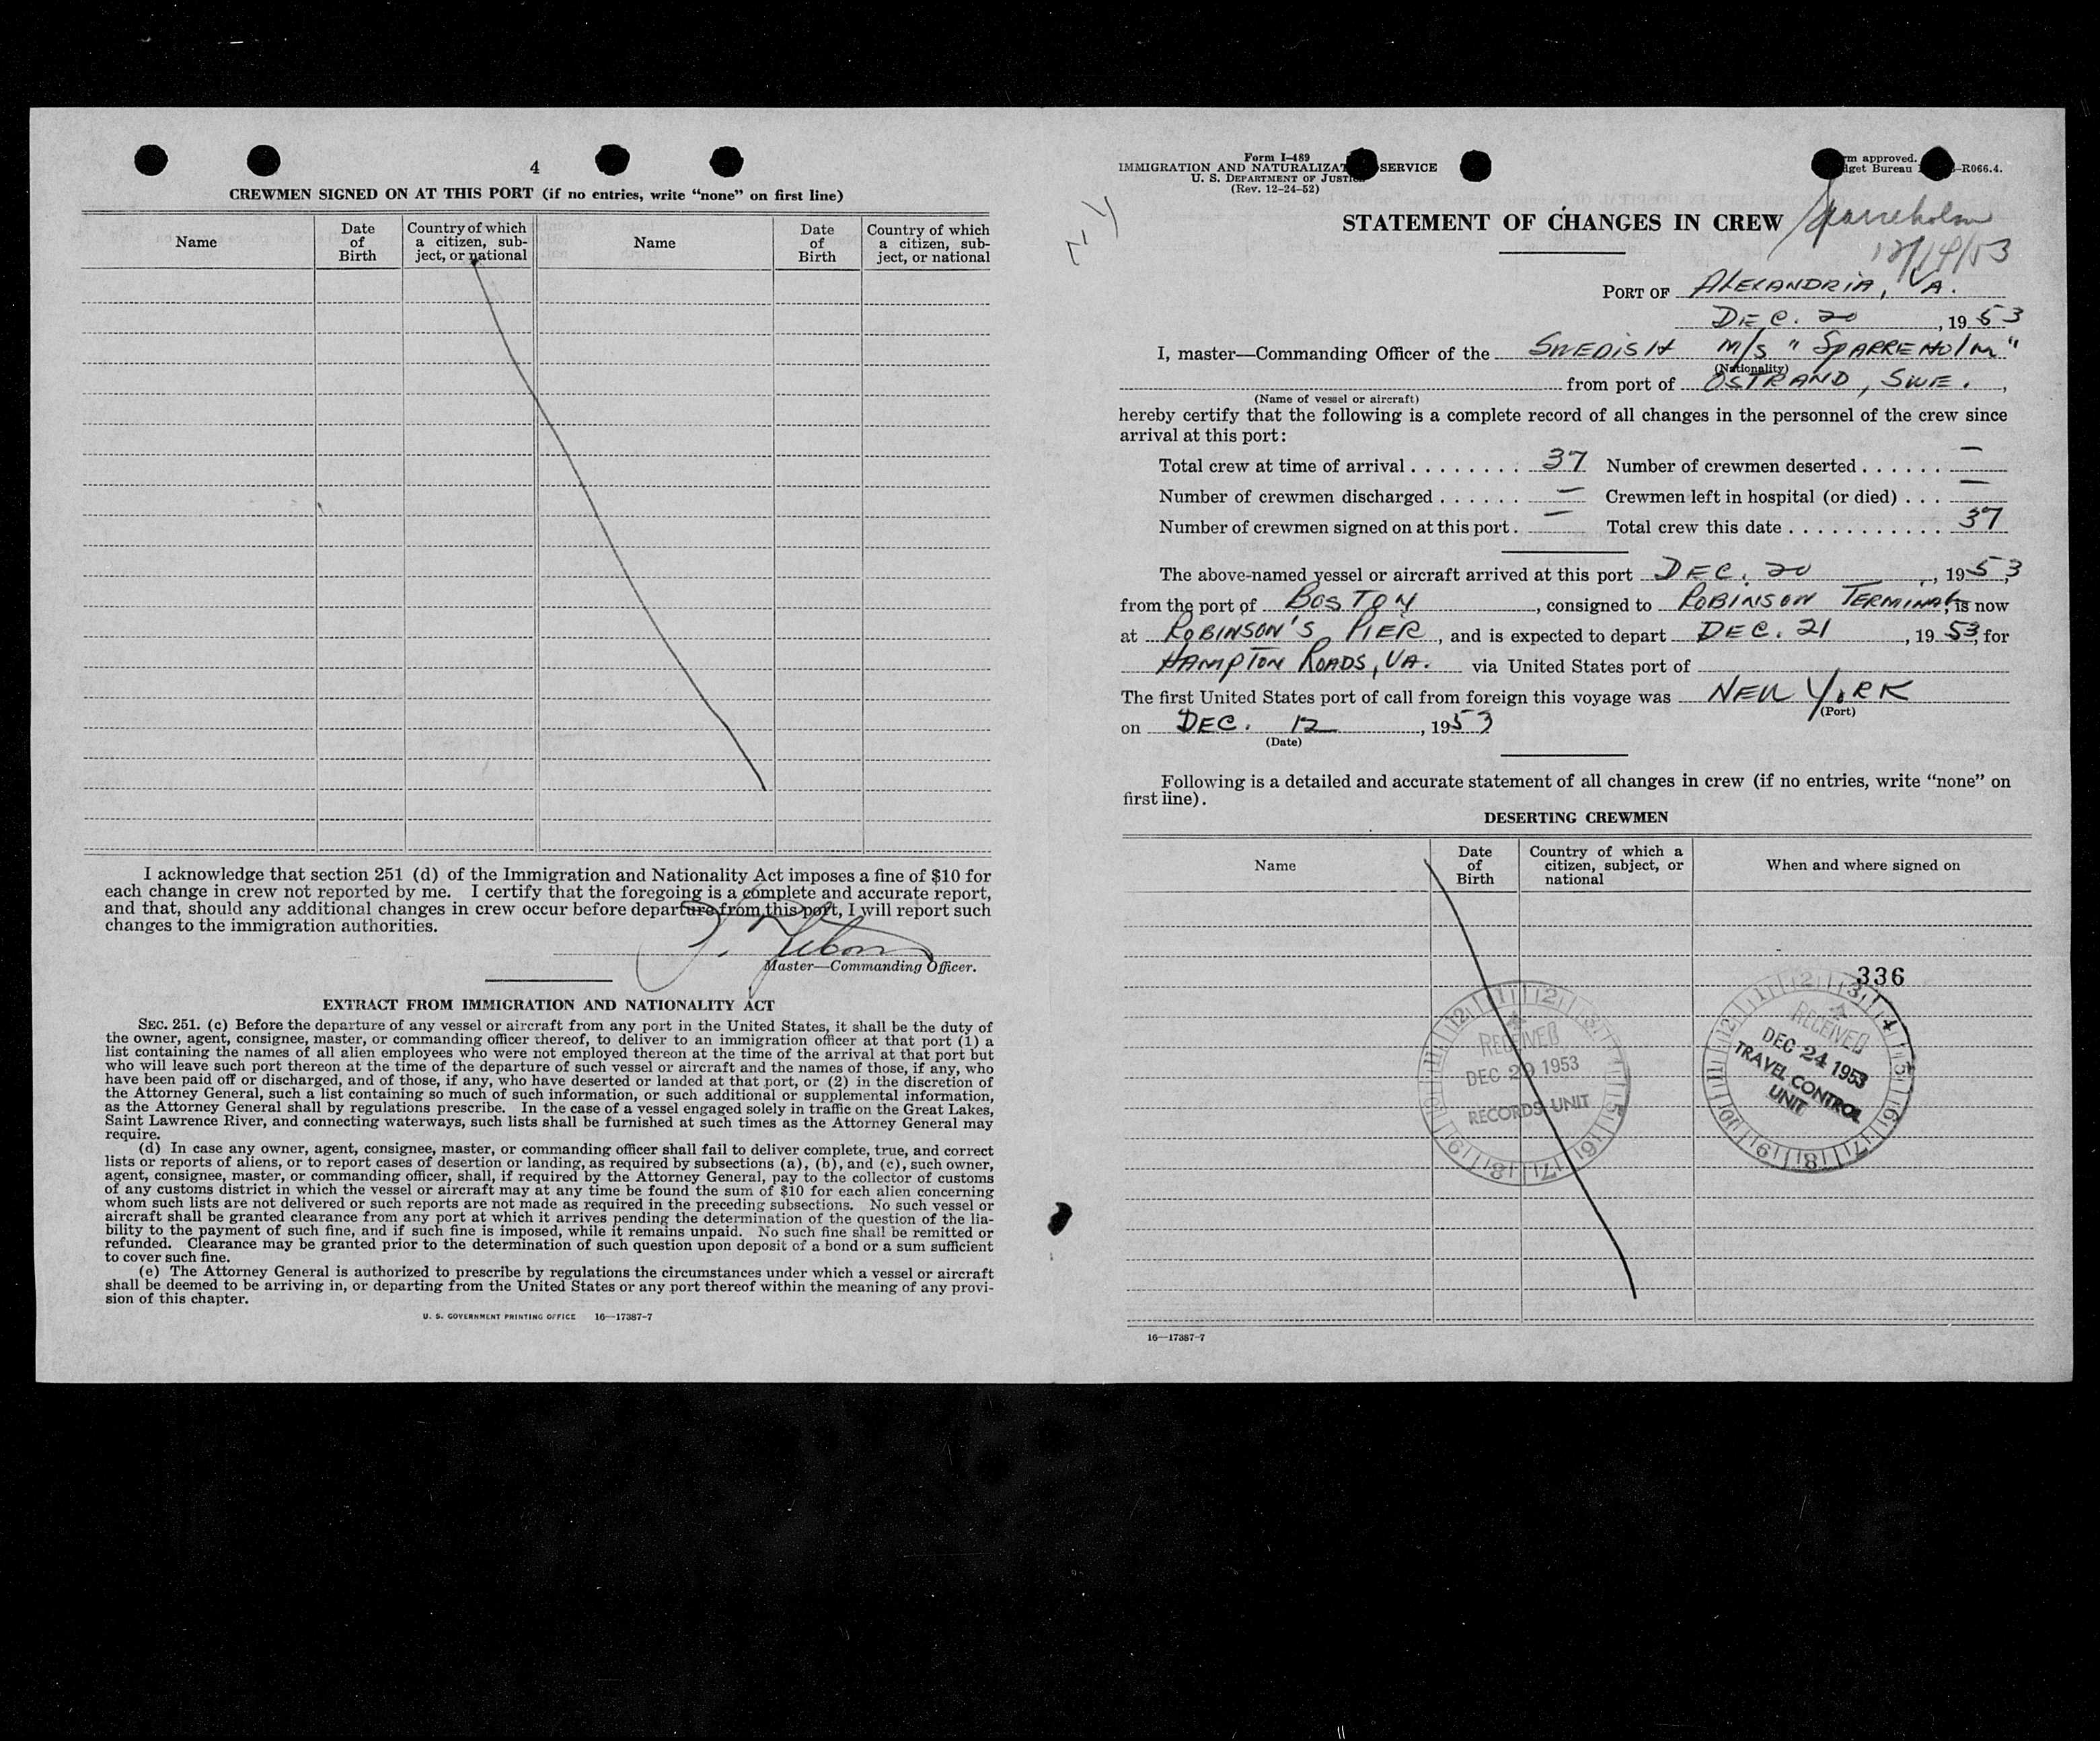 4
CREWMEN SIGNED ON AT THIS PORT (if no entries, write “none” on first line)
Name
Date of Birth
Country of which a citizen, sub-ject, or national
Name
Date of Birth
Country of which a citizen, sub-ject, or national
I acknowledge that section 251 (d) of the Immigration and Nationality Act imposes a fine of $10 for
each change in crew not reported by me. I certify that the foregoing is a complete and accurate report,
and that, should any additional changes in crew occur before departure from this port, I will report such
changes to the immigration authorities.
Master—Commanding Officer.
EXTRACT FROM IMMIGRATION AND NATIONALITY ACT
SEC. 251. (c) Before the departure of any vessel or aircraft from any port in the United States, it shall be the duty of
the owner, agent, consignee, master, or commanding officer thereof, to deliver to an immigration officer at that port (1) a
list containing the names of all alien employees who were not employed thereon at the time of the arrival at that port but
who will leave such port thereon at the time of the departure of such vessel or aircraft and the names of those, if any, who
have been paid off or discharged, and of those, if any, who have deserted or landed at that port, or (2) in the discretion of
the Attorney General, such a list containing so much of such information, or such additional or supplemental information,
as the Attorney General shall by regulations prescribe. In the case of a vessel engaged solely in traffic on the Great Lakes,
Saint Lawrence River, and connecting waterways, such lists shall be furnished at such times as the Attorney General may
require.
(d) In case any owner, agent, consignee, master, or commanding officer shall fail to deliver complete, true, and correct
lists or reports of aliens, or to report cases of desertion or landing, as required by subsections (a), (b), and (c), such owner,
agent, consignee, master, or commanding officer, shall, if required by the Attorney General, pay to the collector of customs
of any customs district in which the vessel or aircraft may at any time be found the sum of $10 for each alien concerning
whom such lists are not delivered or such reports are not made as required in the preceding subsections. No such vessel or
aircraft shall be granted clearance from any port at which it arrives pending the determination of the question of the lia-
bility to the payment of such fine, and if such fine is imposed, while it remains unpaid. No such fine shall be remitted or
refunded. Clearance may be granted prior to the determination of such question upon deposit of a bond or a sum sufficient
to cover such fine.
(e) The Attorney General is authorized to prescribe by regulations the circumstances under which a vessel or aircraft
shall be deemed to be arriving in, or departing from the United States or any port thereof within the meaning of any provi-
sion of this chapter.
U. S. GOVERNMENT PRINTING OFFICE 16—17387-7
Form I-489
IMMIGRATION AND NATURALIZAT SERVICE
U. S. DEPARTMENT OF JUSTICE
(Rev. 12-24-52)
m approved.
get Bureau -R066.4.
N Y
STATEMENT OF CHANGES IN CREW
Sparreholm
12/14/53
PORT OF ALEXANDRIA, VA.
DEC. 20, 1953
I, master—Commanding Officer of the SWEDISH M/S "SPARREHOLM"
(Nationality)
from port of OSTRAND, SWE.,
(Name of vessel or aircraft)
hereby certify that the following is a complete record of all changes in the personnel of the crew since
arrival at this port:
Total crew at time of arrival . . . . . . . . 37 Number of crewmen deserted . . . . . . —
Number of crewmen discharged . . . . . . — Crewmen left in hospital (or died) . . . —
Number of crewmen signed on at this port . — Total crew this date . . . . . . . . . . . . 37
The above-named vessel or aircraft arrived at this port DEC. 20, 1953,
from the port of BOSTON, consigned to ROBINSON TERMINAL, is now
at ROBINSON'S PIER, and is expected to depart DEC. 21, 1953, for
HAMPTON ROADS, VA. via United States port of
The first United States port of call from foreign this voyage was NEW YORK
(Port)
on DEC. 12, 1953
(Date)
Following is a detailed and accurate statement of all changes in crew (if no entries, write “none” on
first line).
DESERTING CREWMEN
Name
Date of Birth
Country of which a citizen, subject, or national
When and where signed on
336
RECEIVED
DEC 29 1953
RECORDS UNIT
RECEIVED
DEC 24 1953
TRAVEL CONTROL
UNIT
16—17387-7